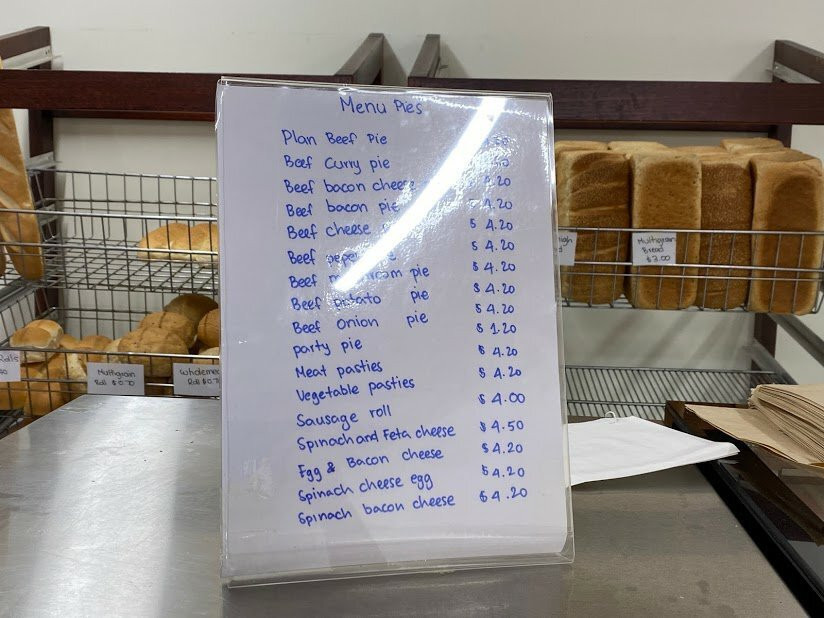 Menu Pies
Plan Beef Pie
Beef Curry pie
Beef bacon cheese 4.20
Beef bacon pie 4.20
Beef cheese $ 4.20
Beef $ 4.20
Beef pie $ 4.20
Beef potato pie $ 4.20
Beef onion pie $ 4.20
party pie $ 1.20
Meat pasties $ 4.20
Vegetable pasties $ 4.20
Sausage roll $ 4.00
Spinach and Feta cheese $ 4.50
Egg & Bacon cheese $ 4.20
Spinach cheese egg $ 4.20
Spinach bacon cheese $ 4.20
Multigrain
Bread
$3.00
Multigrain
Roll $0.70
Wholemeal
Roll $0.7